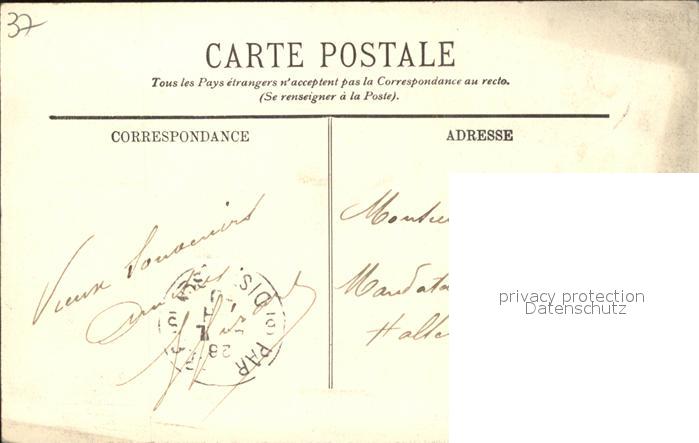 37
CARTE POSTALE
Tous les Pays étrangers n'acceptent pas la Correspondance au recto.
(Se renseigner à la Poste).
CORRESPONDANCE
ADRESSE
Vieux Souvenirs
PARIS
28
Mandata
Halle
privacy protection
Datenschutz